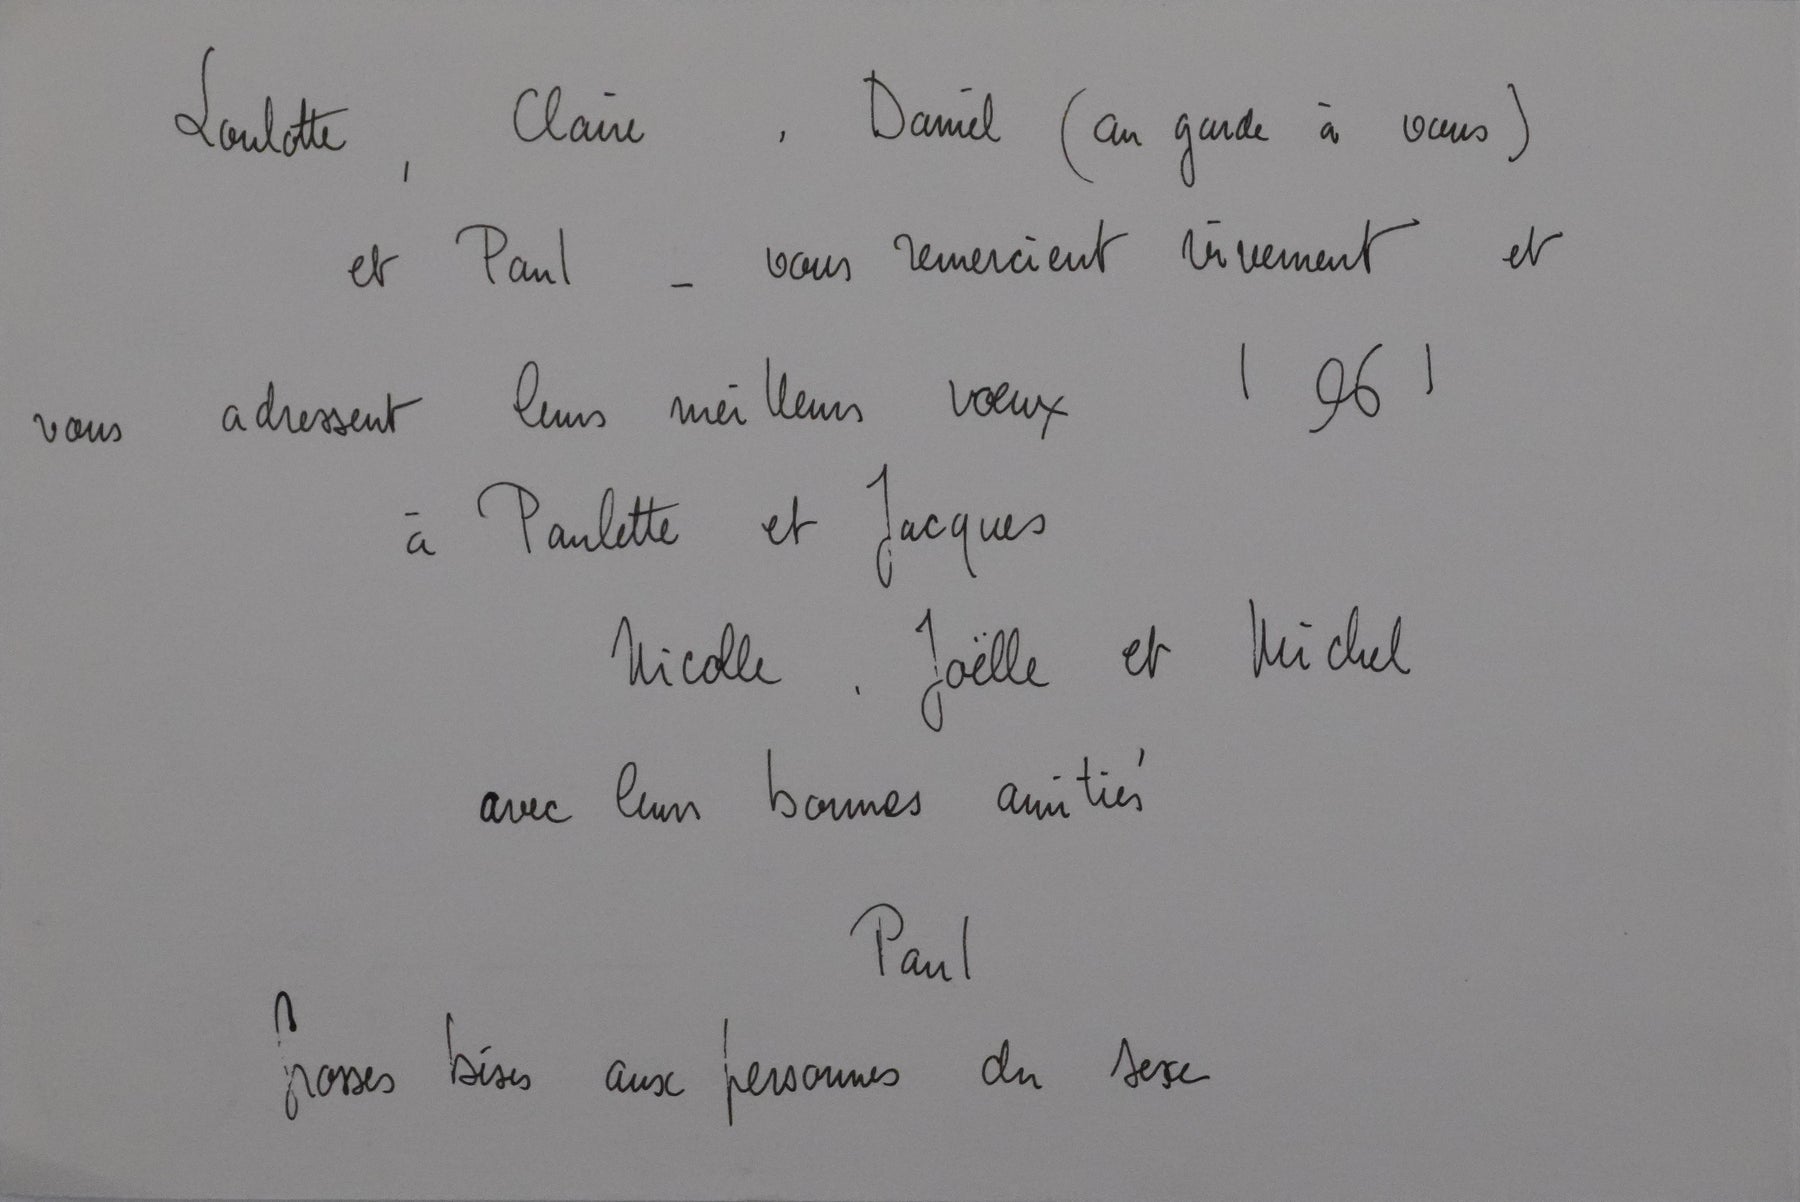 Loulotte, Claire, Daniel (au garde à vous)
et Paul - vous remercient vivement et
vous adressent leurs meilleurs vœux ' 96 '
à Paulette et Jacques
Nicolle, Joëlle et Michel
avec leurs bonnes amitiés
Paul
Grosses bises aux personnes du sexe